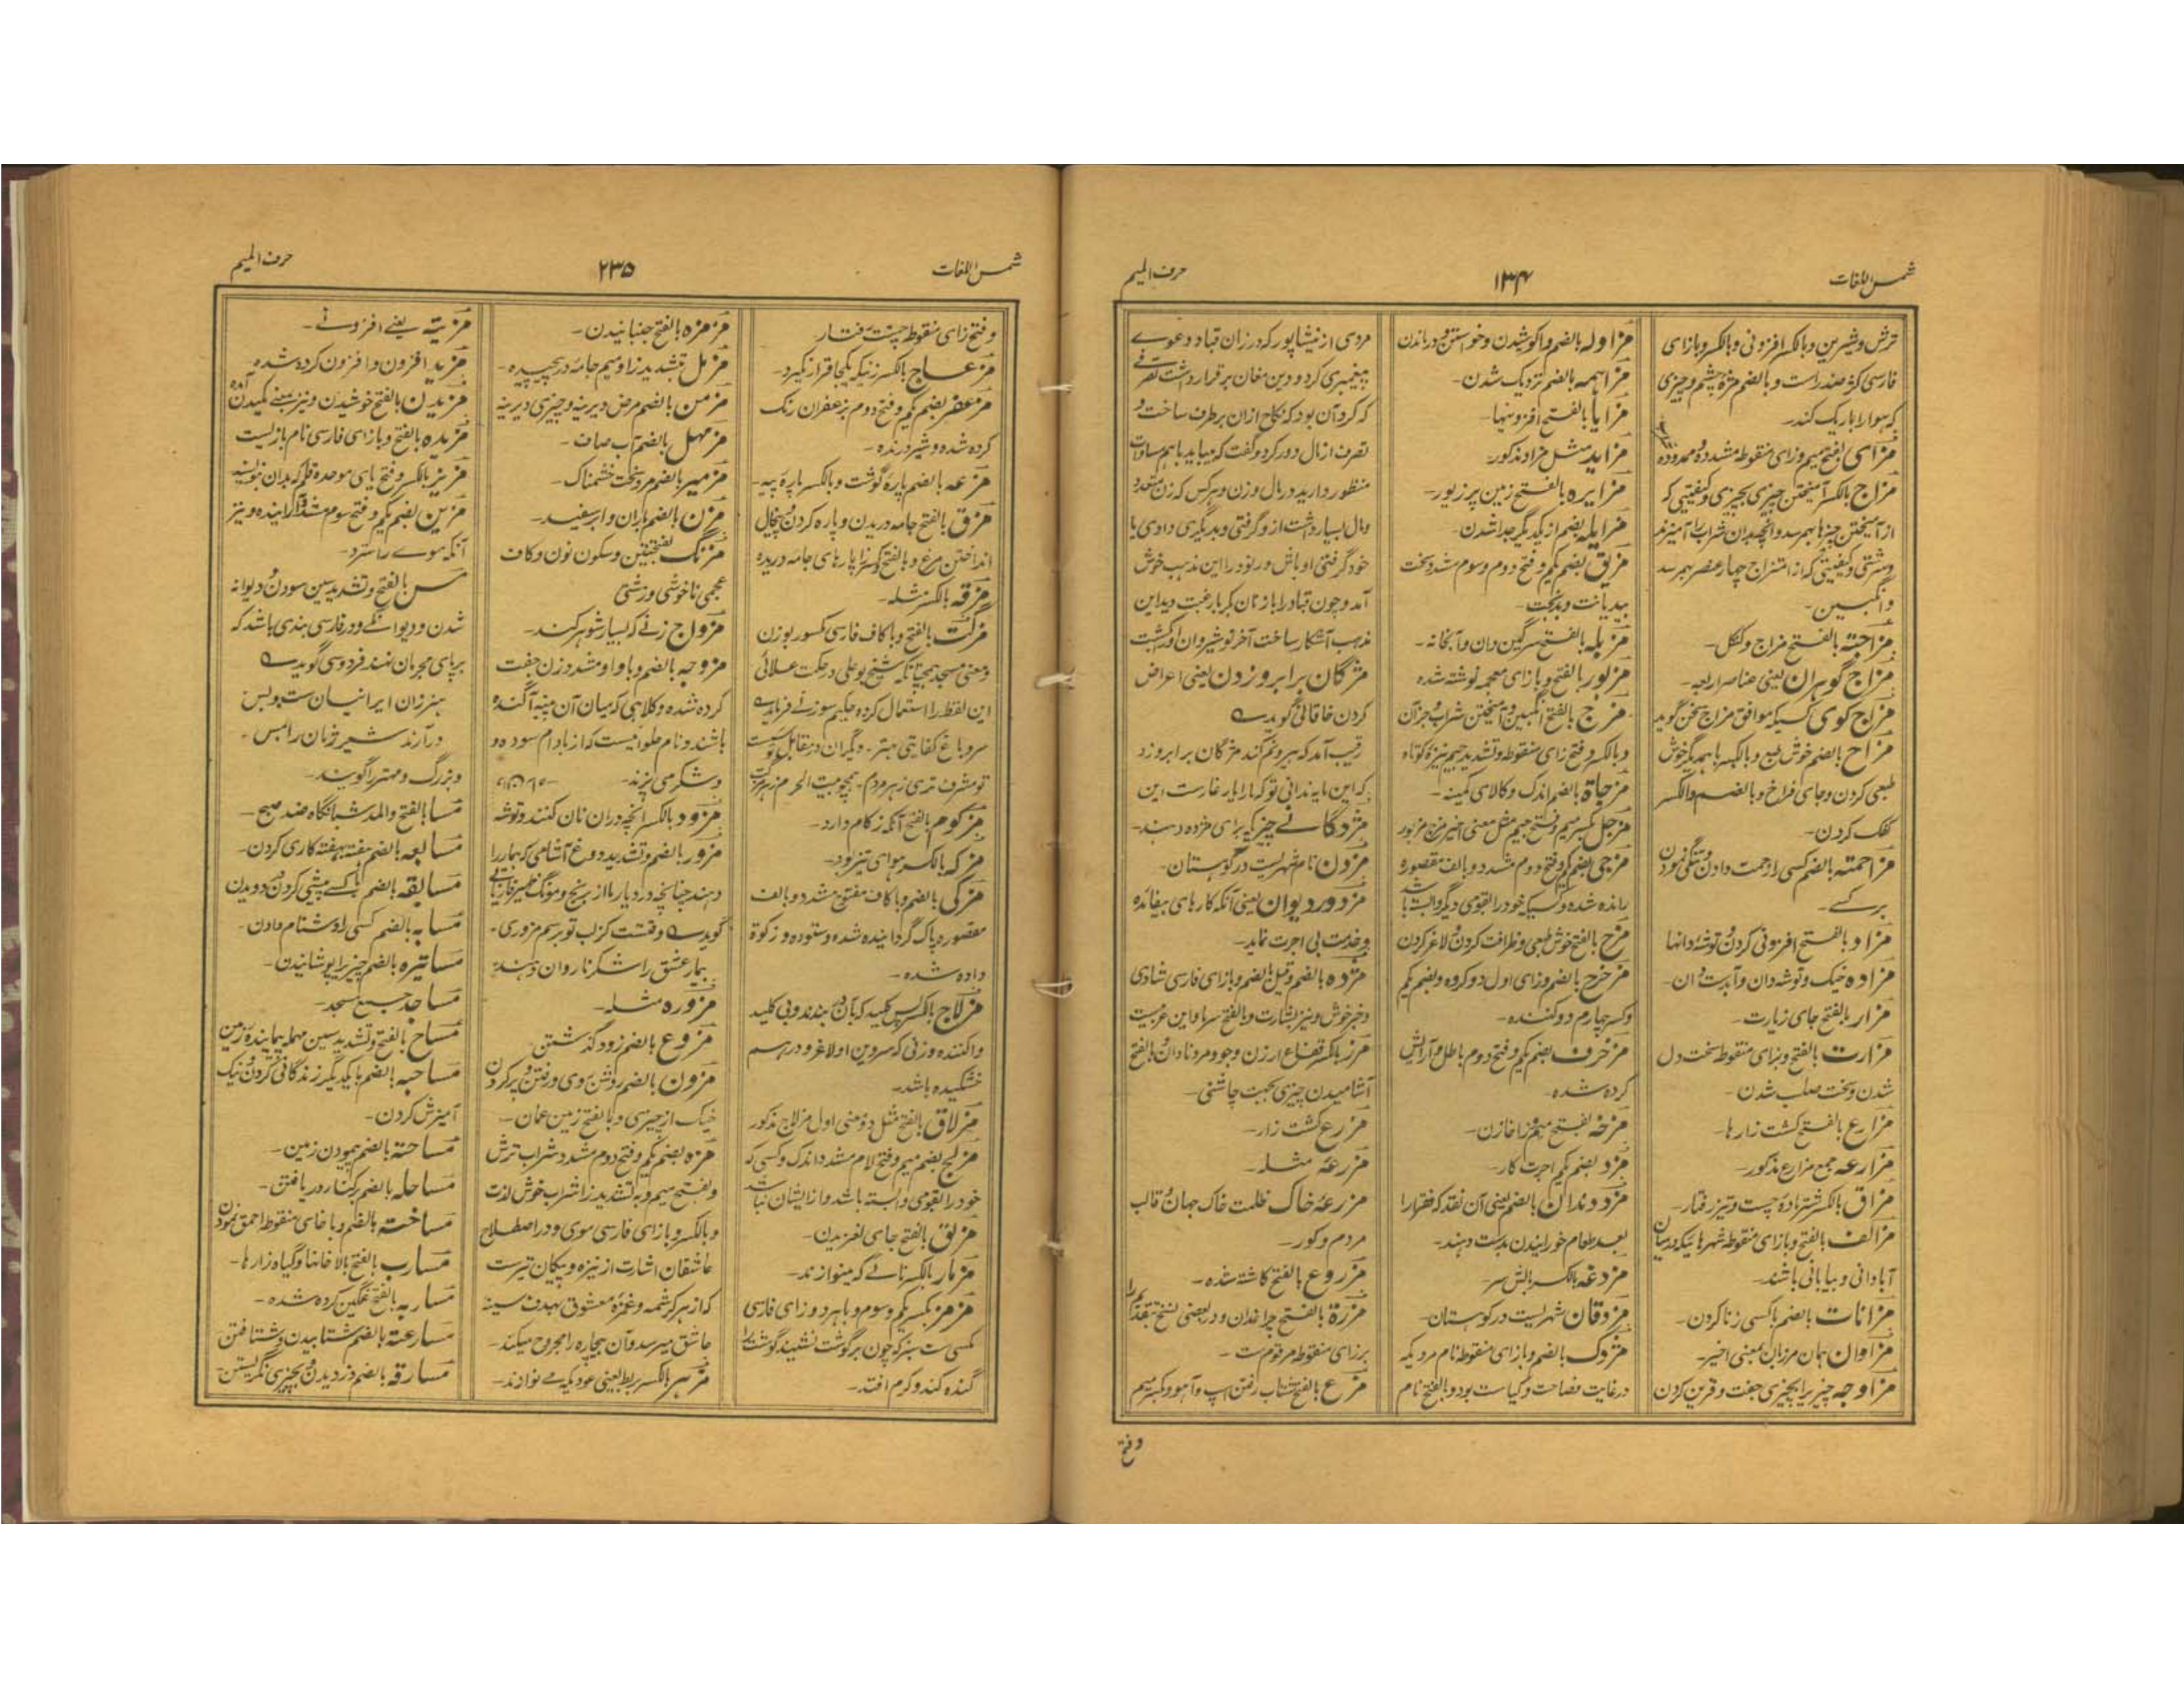 شمس اللغات
۱۳۴
حرف المیم
ترش و شیرین و بالکسر افزونی و بالکسر و بازای
فارسی کوژ ضد راست و بالضم مژهٔ چشم و چیزی
که هوا را باریک کند۔
مزاسی بفتح میم و زای منقوطه مشدده و ممدوده
مزاج بالکسر آمیختن چیزی بچیزی و کیفیتی که
از آمیختن چیزها بهم رسد و آنچه بدان شراب را آمیزند
و سرشتی و کیفیتی که از امتزاج چهار عنصر بهم رسد
و انگبین۔
مزاجته بالفتح مزاج و کنکل۔
مزاج گوهران یعنی عناصر اربعه۔
مزاج گوی کسیکه موافق مزاج سخن گوید
مزاح بالضم خوش طبع و بالکسر باهمدیگر خوش
طبعی کردن و جای فراخ و بالضم والکسر
کردن۔
مزاحمته بالضم کسی را زحمت دادن و تنگی نمودن
بر کسے۔
مزاد بالفتح افزونی کردن و توشه دانها
مزاده خیک و توشه دان و آبدست دان۔
مزار بالفتح جای زیارت۔
مزارت بالفتح و بزای منقوطه سخت دل
شدن و سخت صلب شدن۔
مزارع بالفتح کشت زارها۔
مزارعه جمع مزارع مذکور۔
مزاق بالکسر شتر ماده چست و تیز رفتار۔
مزالف بالفتح و بازای منقوطه شهرهائیکه درمیان
آبادانی و بیابانی باشند۔
مزانات بالضم باکسی زنا کردن۔
مزاوان همان مرزبان بمعنی اخیر۔
مزاوجه چیزی را بچیزی جفت و قرین کردن
مزاوله بالضم واکوشیدن و خواستن و درماندن
مزاهمه بالضم نزدیک شدن۔
مزایا بالفتح افزونیها۔
مزاید مثل مزاد مذکور۔
مزایره بالفتح زمین پر زیور۔
مزایله بضم از یکدیگر جدا شدن۔
مزبق بضم یکم و فتح دوم و سوم مشدد سخت
بددیانت و بدبخت۔
مزبله بالفتح سرگین دان و آبخانه۔
مزبور بالفتح و بازای معجمه نوشته شده
مزج بالفتح انگبین و آمیختن شراب و جز آن
و بالکسر و فتح زای منقوطه و تشدید جیم نیزهٔ کوتاه
مزجاة بالضم اندک و کالای کمینه۔
مزجل بکسر میم و فتح جیم مثل معنی اخیر مزج مزبور
مزجی بضم یکم و فتح دوم مشدد و بالف مقصوره
رانده شده و کسیکه خود را بقومی دیگر وابسته باشد
مزح بالفتح خوش طبعی و ظرافت کردن و لاغ کردن
مزحزح بالضم و زای اول دو کرده و بضم یکم
و کسر چهارم دو کننده۔
مزخرف بضم یکم و فتح دوم باطل و آرایش
کرده شده۔
مزخه بفتح میم و زا خازن۔
مزد بضم یکم اجرت کار۔
مزد دندان بالضم یعنی آن نقد که فقرا را
بعد طعام خورانیدن بدست دهند۔
مزدغه بالکسر بالش سر
مزدقان شهریست در کوهستان۔
مزدک بالضم و بازای منقوطه نام مردیکه
در غایت فصاحت و کیاست بود و بالفتح نام
مردی از نیشاپور که در زمان قباد دعوی
پیغمبری کرد و دین مغان برقرار داشت تصرفی
که کرد آن بود که نکاح از آن برطرف ساخت و
تصرف از ال دور کرد و گفت که میباید باهم مساوات
منظور دارید در مال و زن و هر کس که زن متعدد
و مال بسیار داشت از و گرفتی و بدیگری دادی یا
خود گرفتی اوباش و رنود را این مذهب خوش
آمد و چون قباد را با زنان بکر بارغبت دید این
مذهب آشکار ساخت آخر نوشیروان او را کشت
مژگان بر ابرو زدن یعنی اعراض
کردن خاقانی گوید
رقیب آمد که بیرونم کند مژگان بر ابرو زد
که این مایه ندانی تو که ما را یار غارست این
مژدگانے چیزیکه برای مژده دهند۔
مزدن نام شهریست در کوهستان۔
مزدور دیوان یعنی آنکه کارهای بیفائده
و خدمت بی اجرت نماید۔
مژده بالضم و قیل بالضم و بازای فارسی شادی
و خبر خوش و نیز بشارت و بالفتح سرما و این عربیست
مرز بالکسر فقاع ارزن و جو و مرد نادان و بالفتح
آشامیدن چیزی بجهت چاشنی۔
مزرع کشت زار۔
مزرعه مثله۔
مزرعه خاک ظلمت خاک جهان و قالب
مردم و گور۔
مزروع بالفتح کاشته شده۔
مزرة بالفتح چراغدان و در بعضی نسخ
برزای منقوطه مرقومست۔
مزع بالفتح شتاب رفتن اسپ و آهو و بکسر میم
وفتح
شمس اللغات
۲۳۵
حرف المیم
و فتح زای منقوطه چست رفتار۔
مزعاج بالکسر زنیکه یکجا قرار نگیرد۔
مزعفر بضم یکم و فتح دوم بزعفران رنگ
کرده شده و شیر درنده۔
مزعه بالضم پارهٔ گوشت و بالکسر پارهٔ پیه۔
مزق بالفتح جامه دریدن و پاره کردن و پیخال
انداختن مرغ و بالفتح و کسر زا پارهای جامه دریده
مزقه بالکسر مثله۔
مزگت بالفتح و با کاف فارسی مکسور بوزن
و معنی مسجد همچنانکه شیخ بوعلی در حکمت علائی
این لفظ را استعمال کرده حکیم سوزنی فرماید
مزکوم بالفتح آنکه زکام دارد۔
مزکه بالکسر هوای تیز بود۔
مزکی بالضم و با کاف مفتوح مشدد و بالف
مقصور پاک گردانیده شده و ستوده و زکوة
داده شده۔
مزلاج بالکسر پس کلید که بآن در بندند و بی کلید
واکننده و زنی که سرین او لاغر و درهم
خشکیده باشد۔
مزلاق بالفتح مثل دو معنی اول مزلاج مذکور
مزلج بضم میم و فتح لام مشدد اندک و کسی که
خود را بقومی وابسته باشد و از ایشان نباشد
مزلق بالفتح جای لغزیدن۔
مزمار بالکسر نائے که مینوازند۔
مزمز بکسر یکم و سوم و باهر دو زای فارسی
مگسی ست سبز که چون بر گوشت نشیند گوشت را
گنده کند و کرم افتد۔
مزمزه بالفتح جنبانیدن۔
مزمل بتشدید زا و میم جامه در پیچیده۔
مزمن بالضم مرض دیرینه و چیزی دیرینه
مزمهل بالضم آب صاف۔
مزمیر بالضم مرد سخت خشمناک۔
مزن بالضم باران و ابر سفید۔
مزنگ بفتحتین و سکون نون و کاف
عجمی ناخوشی و زشتی
مزواج زنے که بسیار شوهر کند۔
مزوجه بالضم و با واو مشدد زن جفت
کرده شده و کلاهی که میان آن پنبه آگنده
باشند و نام حلوائیست که از بادام سوده و
و شکر می پزند۔
مزود بالکسر آنچه در ان نان کنند و توشه
مزور بالضم و تشدید دروغ آشامی که بیمار را
دهند چنانچه در دیار ما از برنج و مونگ ظهیر فاریابی
گوید وقتست کز لب تو برسم مزوری۔
بیمار عشق را شکر ناروان دهند
مزوره مثله۔
مزوع بالضم زود گذشتن۔
مزون بالضم روشن روی و رفتن و پر کردن
خیک از چیزی و بالفتح زمین عمان۔
مزه بضم یکم و فتح دوم مشدد شراب ترش
و بفتح میم و به تشدید زا شراب خوش لذت
و بالکسر و بازای فارسی موی و در اصطلاح
عاشقان اشارت از نیزه و پیکان تیرست
که از هر کرشمه و غمزهٔ معشوق بهدف سینه
عاشق میرسد و آن بیچاره را مجروح میکند۔
مزهر بالکسر بربط یعنی عود که می نوازند۔
مزیة یعنے افزونے۔
مزید افزون و افزون کرده شده۔
مزیدن بالفتح خوشیدن و نیز بمعنی مکیدن آمده
مزیده بالفتح و بازای فارسی نام بازیست
مزیر بالکسر و فتح یای موحده قلم که بدان نویسند
مزین بضم یکم و فتح سوم مشدد آراینده و نیز
آنکه موے را سترد۔
مس بالفتح و تشدید سین سودن و دیوانه
شدن و دیوانگے و در فارسی بندی باشد که
بر پای مجرمان نهند فردوسی گوید
هنر زان ایرانیان ست و بس
درآرند شیر ژیان را بمس۔
و بزرگ و مهتر را گویند۔
مسا بالفتح والمد شبانگاه ضد صبح۔
مسابعه بالضم هفته بهفته کاری کردن۔
مسابقه بالضم با کسے پیشی کردن و دویدن
مسابه بالضم کسی را دشنام دادن۔
مساتره بالضم چیز را پوشانیدن۔
مساجد جمع مسجد۔
مساح بالفتح و تشدید سین مهمله پیمایندهٔ زمین
مساحبه بالضم با یکدیگر زندگانی کردن و نیک
آمیزش کردن۔
مساحته بالضم پیمودن زمین۔
مساحله بالضم بکنار دریا رفتن۔
مساخته بالضم و باخای منقوطه احمق نمودن
مسارب بالفتح بالاخانها و گیاه زارها۔
مساربه بالفتح غمگین کرده شده۔
مسارعته بالضم شتابیدن و شتافتن
مسارقه بالضم دزدیدن و بچیزی نگریستن۔